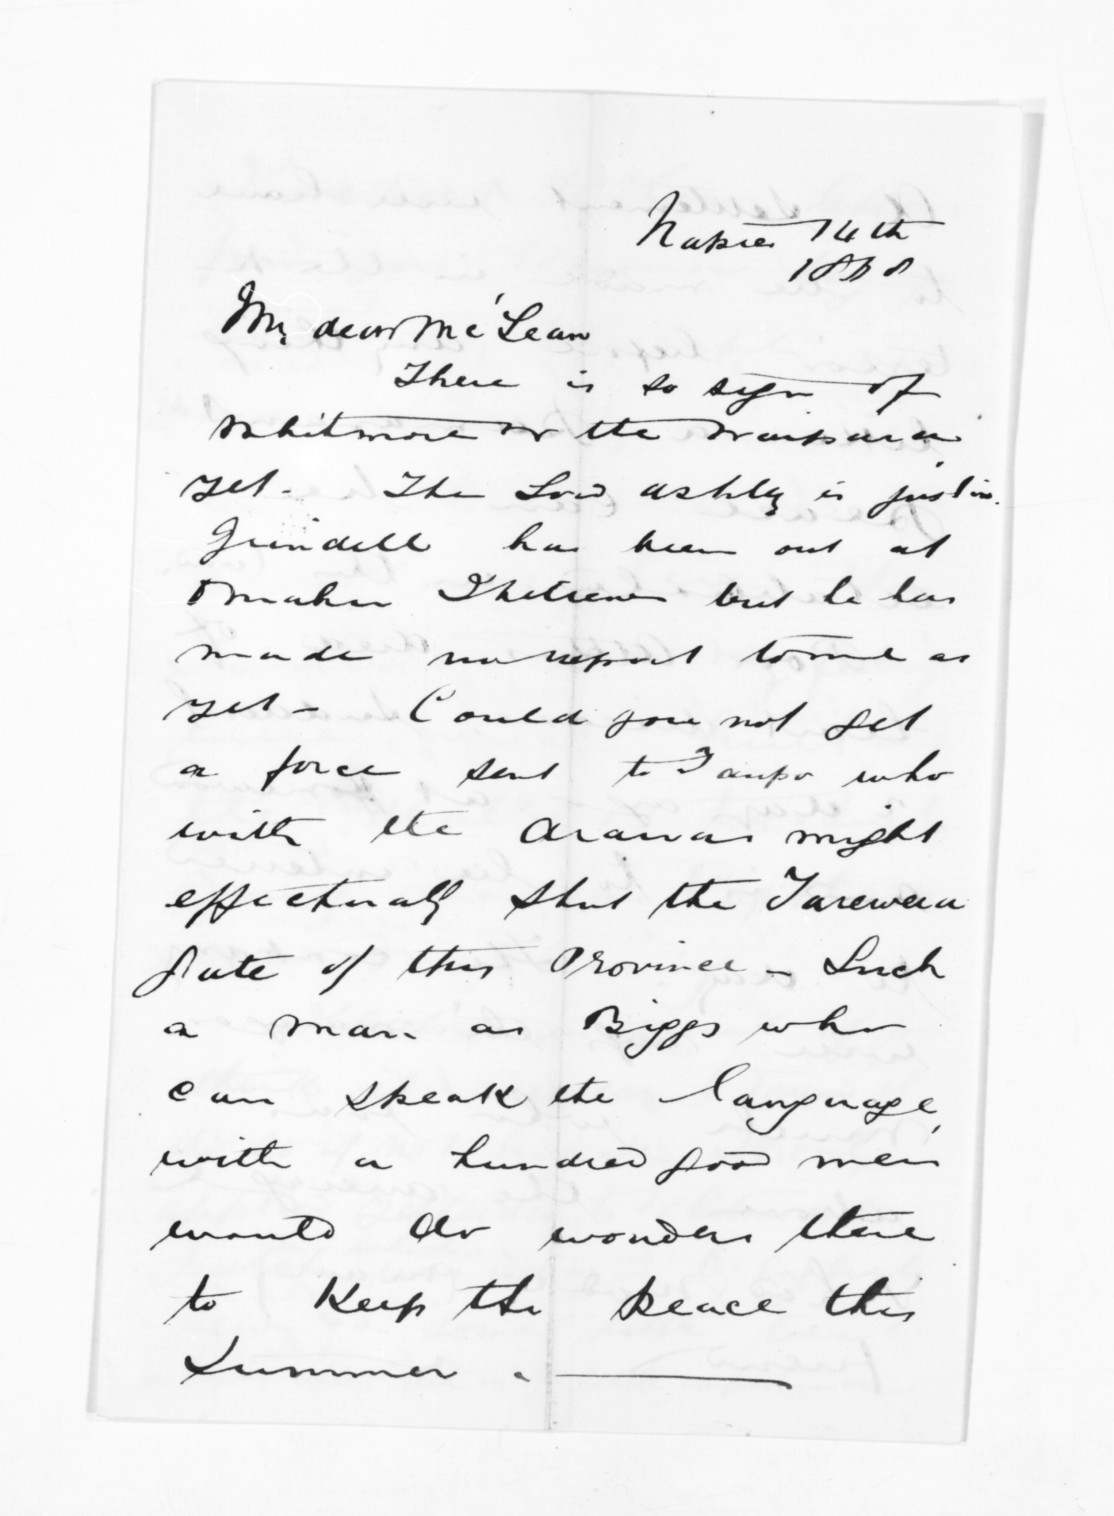 Napier 14th
1868
My dear McLean
There is no sign of
Whitmore or the Waipara
yet - The Lord Ashley is just in.
Grindell has been out at
Omahu
but he has
made no report to me as
yet - Could you not get
a force sent to Taupo who
with the Arawas might
effectually shut the Tarewera
Gate of this Province - Such
a man as Biggs who
can speak the language,
with a hundred good men
would do wonders there
to keep the peace this
Summer.